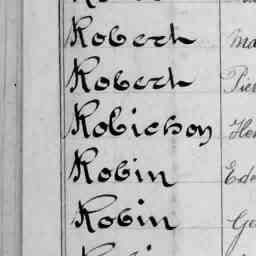 Robert Ma
Robert Pier
Robichon Hen
Robin Edo
Robin Ge